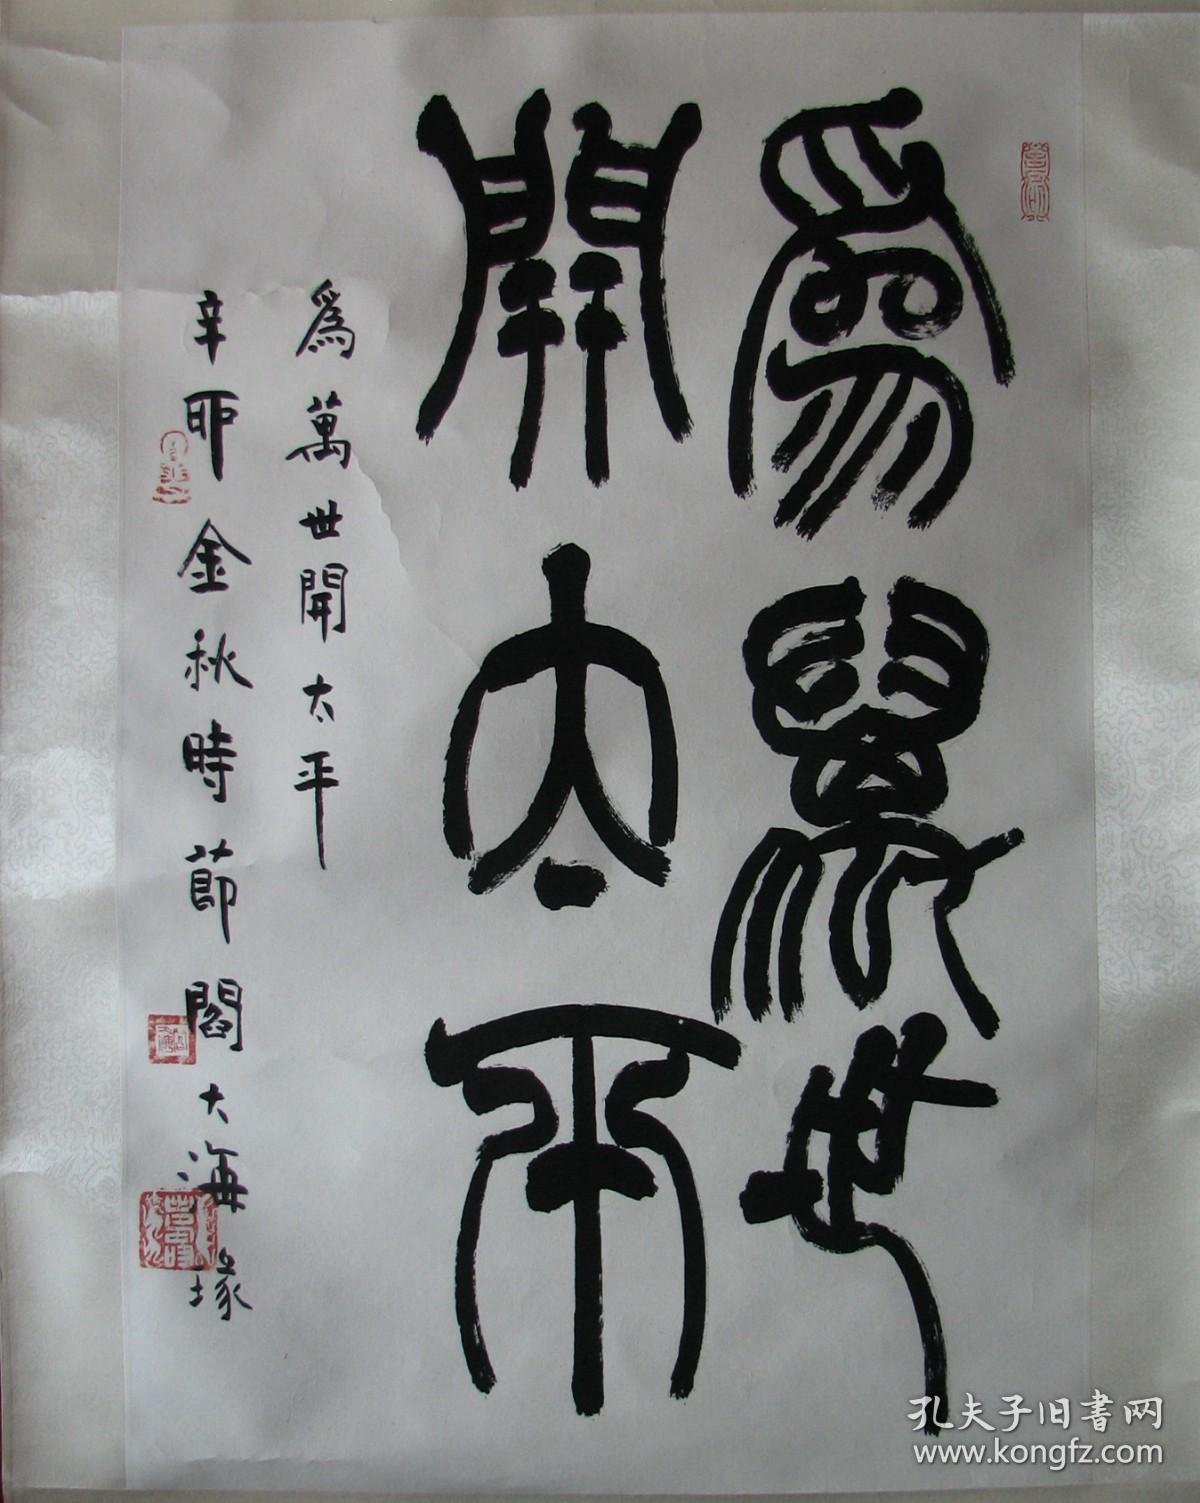 為萬世
開太平
為萬世開太平
辛卯金秋時節閻大海塚
孔夫子旧書网
www.kongfz.com